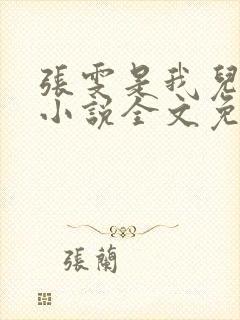 張雯是我兒
小說全文免
張蘭